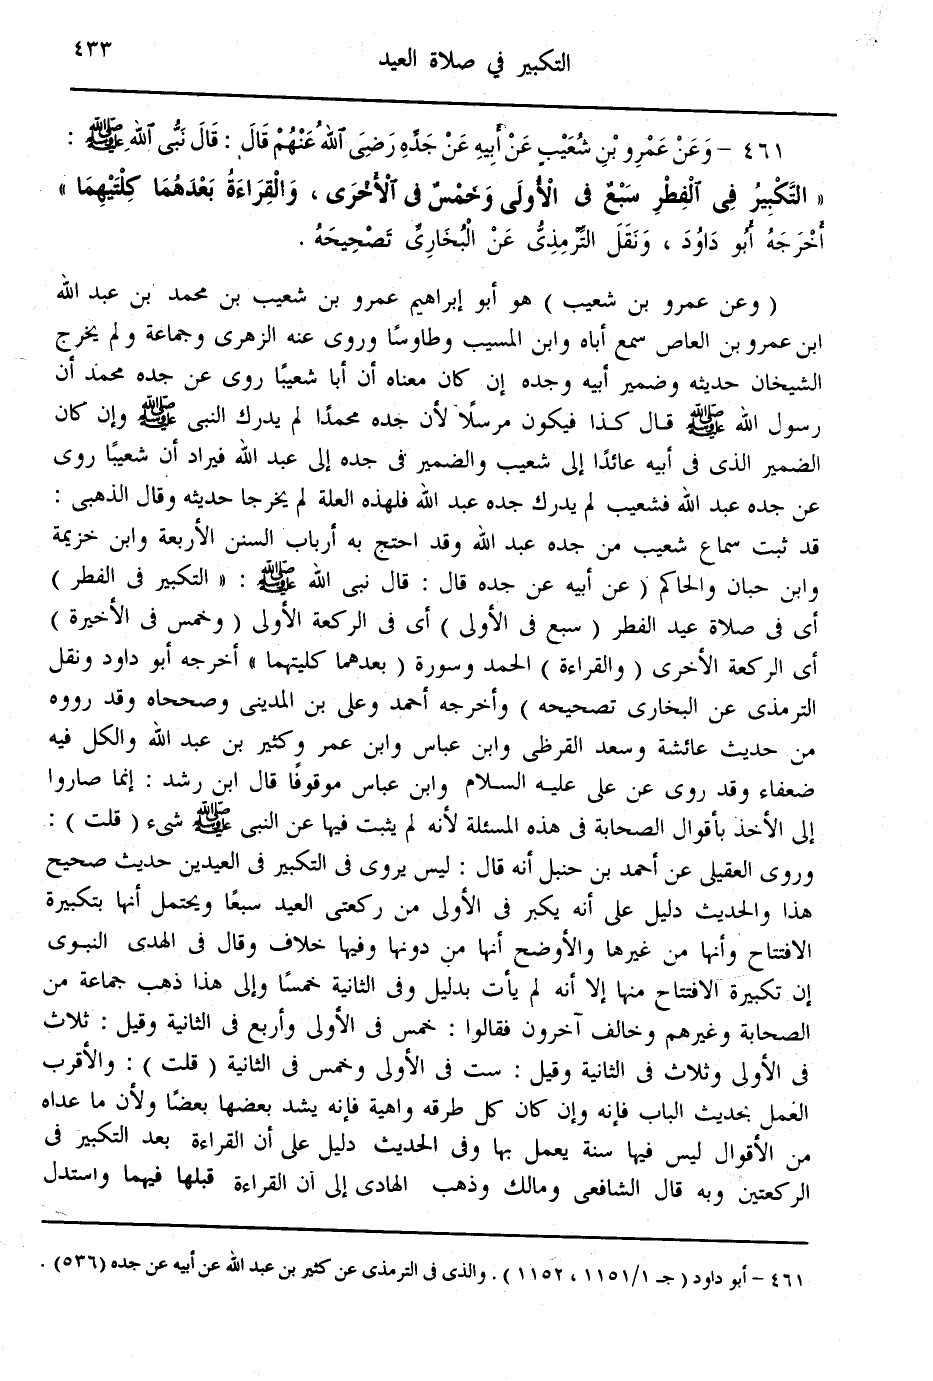 التكبير في صلاة العيد
٤٣٣
٤٦١ - وَعَنْ عَمْرِو بْنِ شُعَيْبٍ عَنْ أَبِيهِ عَنْ جَدِّهِ رَضِىَ ٱللهُ عَنْهُمْ قَالَ : قَالَ نَبُّى ٱللهِ ﷺ :
« التَّكْبِيرُ فِى ٱلْفِطْرِ سَبْعٌ فى الْأُولَى وَخَمْسٌ فى ٱلْأُخْرَى ، وَالْقِرَاءَةُ بَعْدَهُمَا كِلْتَيْهِمَا »
أَخْرَجَهُ أَبُو دَاوُدَ ، وَنَقَلَ التِّرْمِذِىُّ عَنْ الْبُخَارِىِّ تَصْحِيحَهُ .
( وعن عمرو بن شعيب ) هو أبو إبراهيم عمرو بن شعيب بن محمد بن عبد الله
ابن عمرو بن العاص سمع أباه وابن المسيب وطاوسًا وروى عنه الزهرى وجماعة ولم يخرج
الشيخان حديثه وضمير أبيه وجده إن كان معناه أن أبا شعيبًا روى عن جده محمد أن
رسول الله ﷺ قال كذا فيكون مرسلًا لأن جده محمدًا لم يدرك النبى ﷺ وإن كان
الضمير الذى فى أبيه عائدًا إلى شعيب والضمير فى جده إلى عبد الله فيراد أن شعيبًا روى
عن جده عبد الله فشعيب لم يدرك جده عبد الله فلهذه العلة لم يخرجا حديثه وقال الذهبى :
قد ثبت سماع شعيب من جده عبد الله وقد احتج به أرباب السنن الأربعة وابن خزيمة
وابن حبان والحاكم ( عن أبيه عن جده قال : قال نبى الله ﷺ : « التكبير فى الفطر )
أى فى صلاة عيد الفطر ( سبع فى الأولى ) أى فى الركعة الأولى ( وخمس فى الأخيرة )
أى الركعة الأخرى ( والقراءة ) الحمد وسورة ( بعدهما كليتهما » أخرجه أبو داود ونقل
الترمذى عن البخارى تصحيحه ) وأخرجه أحمد وعلى بن المدينى وصححاه وقد رووه
من حديث عائشة وسعد القرظى وابن عباس وابن عمر وكثير بن عبد الله والكل فيه
ضعفاء وقد روى عن على عليه السلام وابن عباس موقوفًا قال ابن رشد : إنما صاروا
إلى الأخذ بأقوال الصحابة فى هذه المسئلة لأنه لم يثبت فيها عن النبى ﷺ شىء ( قلت ) :
وروى العقيلى عن أحمد بن حنبل أنه قال : ليس يروى فى التكبير فى العيدين حديث صحيح
هذا والحديث دليل على أنه يكبر فى الأولى من ركعتى العيد سبعًا ويحتمل أنها بتكبيرة
الافتتاح وأنها من غيرها والأوضح أنها من دونها وفيها خلاف وقال فى الهدى النبوى
إن تكبيرة الافتتاح منها إلا أنه لم يأت بدليل وفى الثانية خمسًا وإلى هذا ذهب جماعة من
الصحابة وغيرهم وخالف آخرون فقالوا : خمس فى الأولى وأربع فى الثانية وقيل : ثلاث
فى الأولى وثلاث فى الثانية وقيل : ست فى الأولى وخمس فى الثانية ( قلت ) : والأقرب
العمل بحديث الباب فإنه وإن كان كل طرقه واهية فإنه يشد بعضها بعضًا ولأن ما عداه
من الأقوال ليس فيها سنة يعمل بها وفى الحديث دليل على أن القراءة بعد التكبير فى
الركعتين وبه قال الشافعى ومالك وذهب الهادى إلى أن القراءة قبلها فيهما واستدل
٤٦١ - أبو داود ( جـ ١١٥١/١ ، ١١٥٢ ) . والذى فى الترمذى عن كثير بن عبد الله عن أبيه عن جده (٥٣٦) .